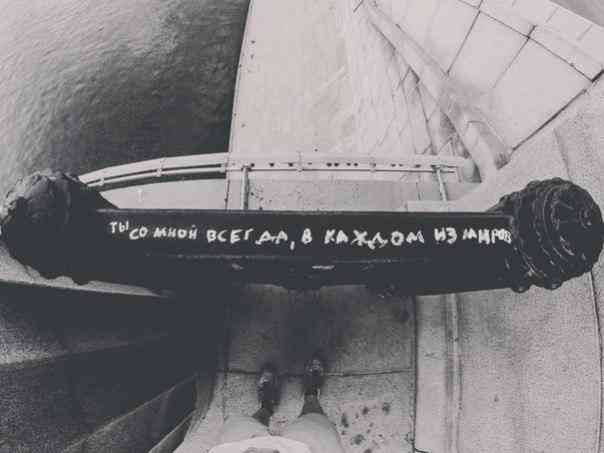 ты со мной всегда, в каждом из миров